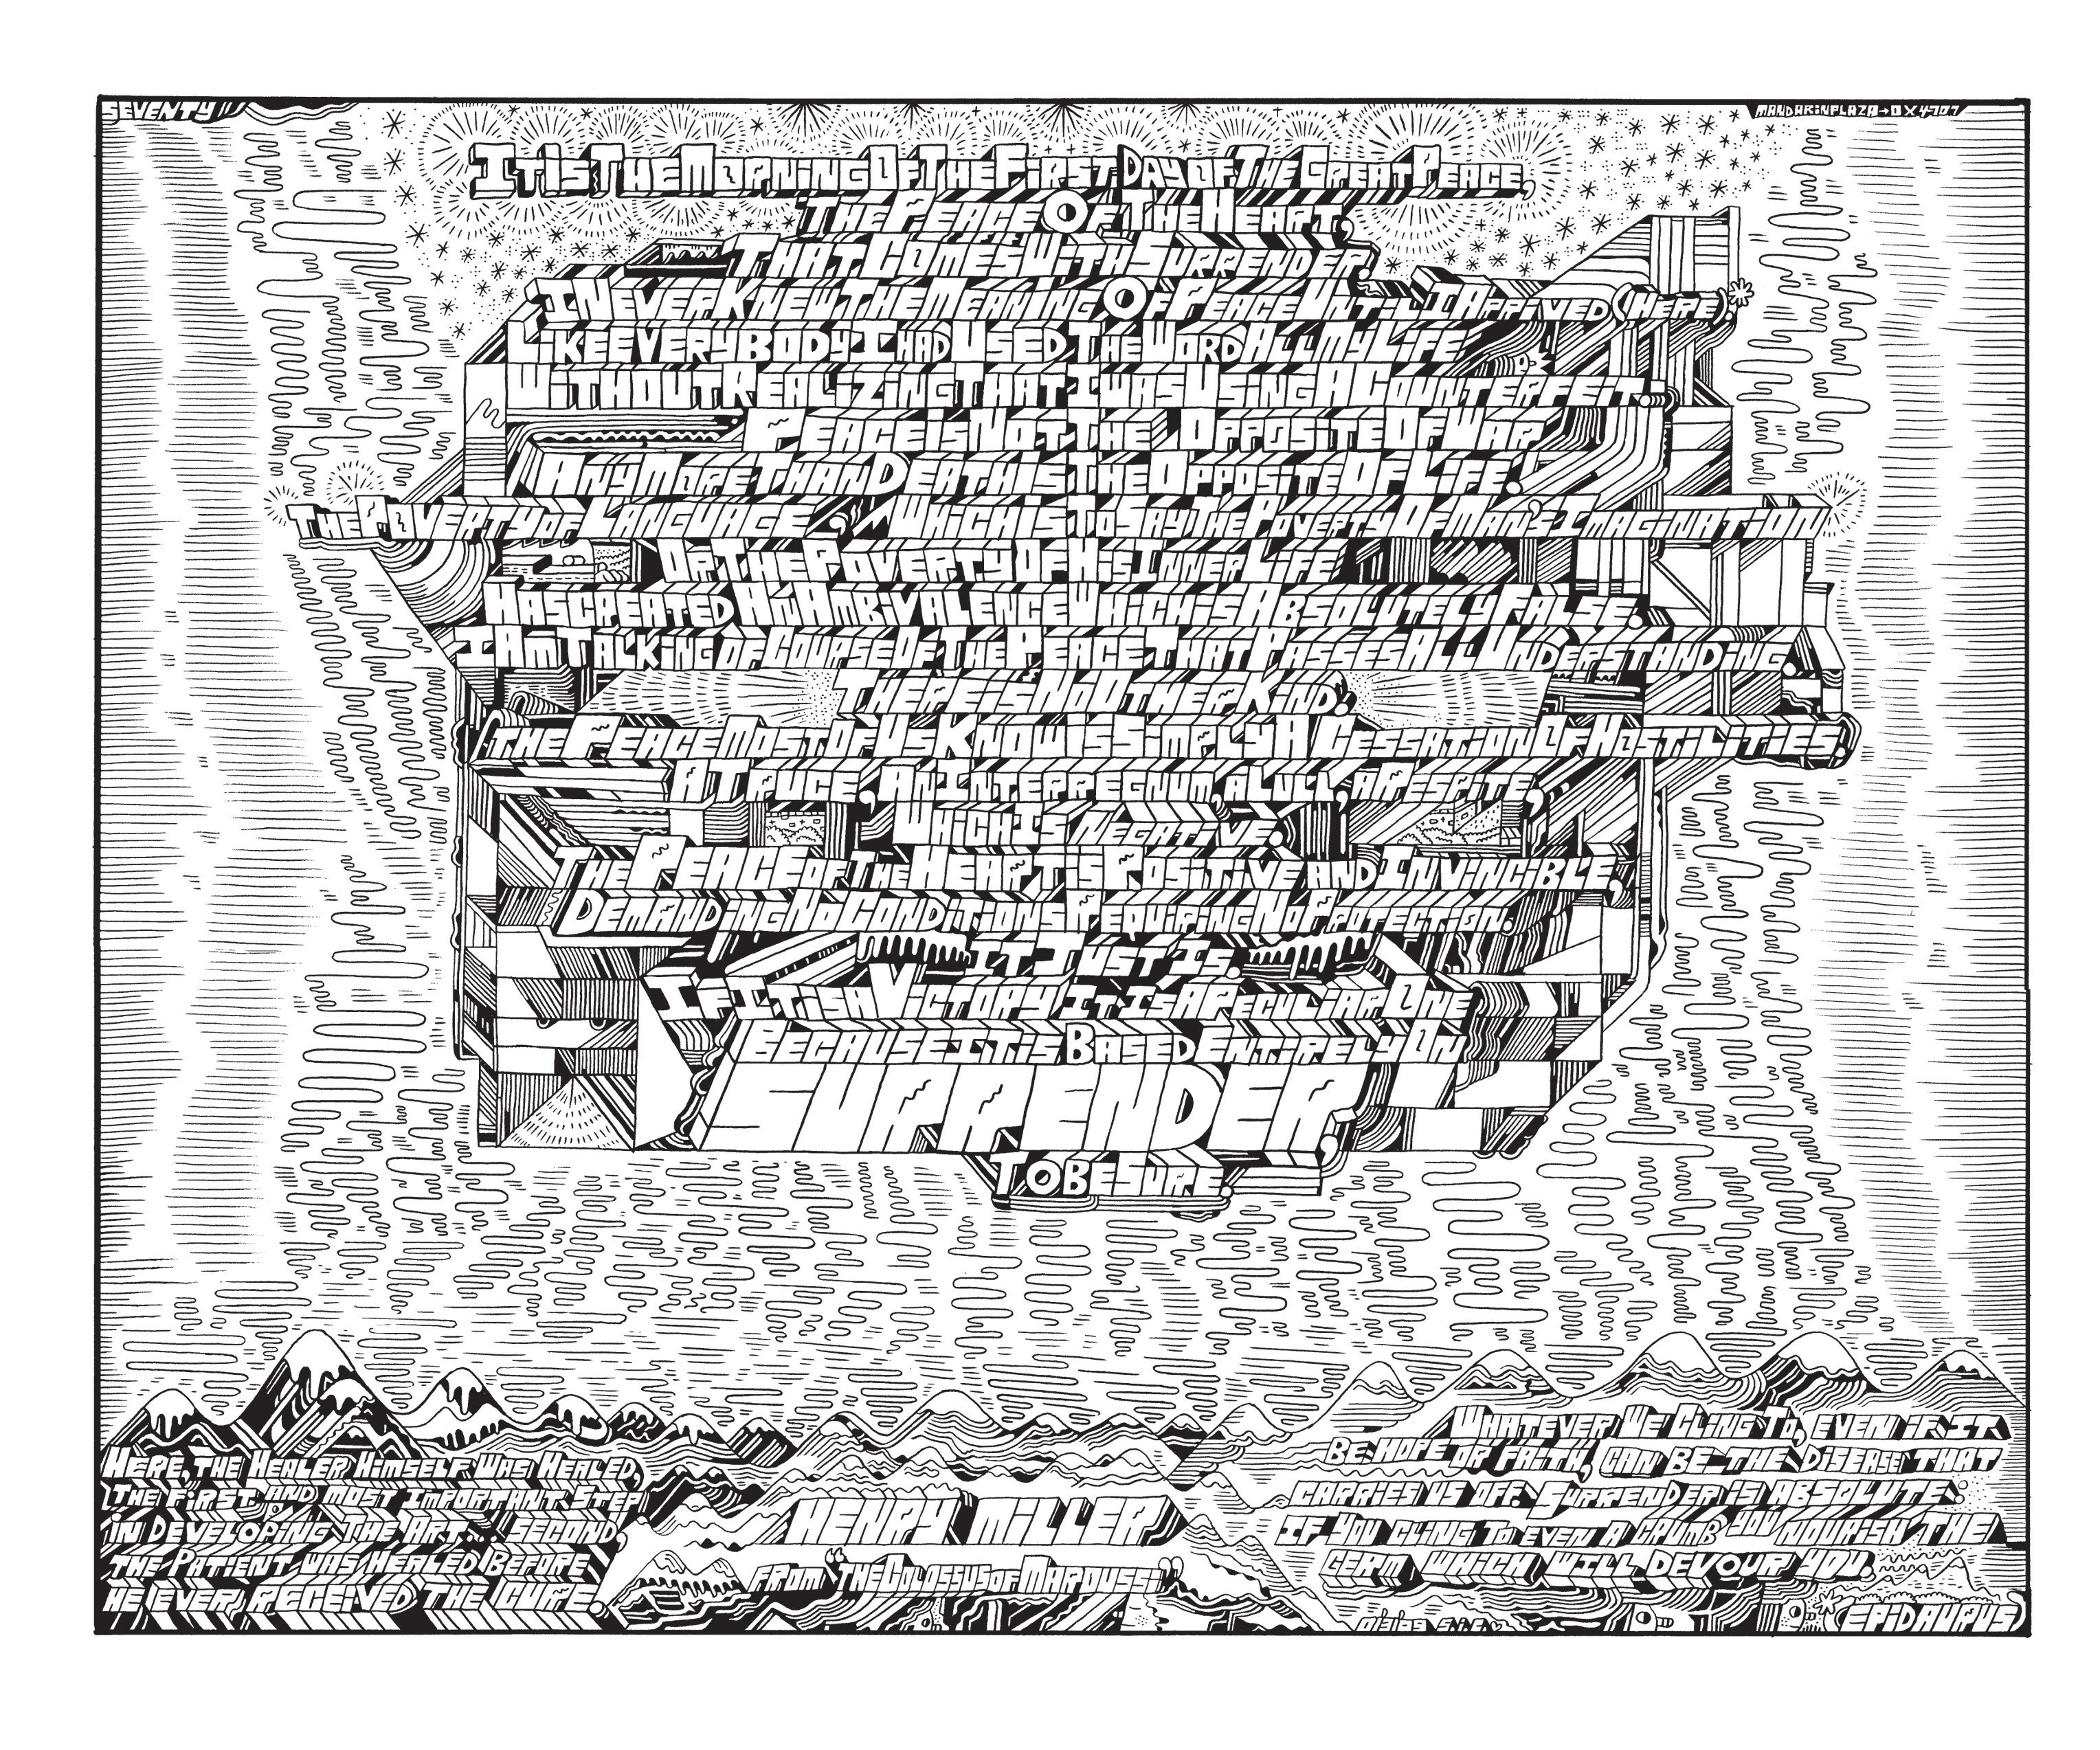 SEVENTY
MANDARINPLAZA→OX4707
It Is The Morning Of The First Day of The Great Peace,
The Peace Of The Heart,
That Comes With Surrender.
I Never Knew The Meaning Of Peace Until I Arrived (Here).*
Like Everybody I had Used The Word All My Life
Without Realizing That I was Using A Counterfeit.
Peace is Not The Opposite Of War
Any More Than Death is The Opposite Of Life.
The Poverty of Language, Which is To Say The Poverty Of Man's Imagination
Or The Poverty Of His Inner Life
Has Created An Ambivalence Which is Absolutely False.
I Am Talking of Course Of The Peace That Passes All Understanding.
There is No Other Kind.
The Peace Most Of Us Know Is Simply A Cessation Of Hostilities,
A Truce, An Interregnum, a Lull, a Respite,
Which Is Negative.
The Peace of The Heart is Positive and Invincible,
Demanding No Conditions Requiring No Protection.
It Just Is.
If It is a Victory It Is A Peculiar One
Because It is Based Entirely On
SURRENDER,
To Be Sure.
Here, the Healer Himself Was Healed,
The First and Most Important Step
in Developing The Art. Second,
The Patient was Healed Before
He Ever Received The Cure.
HENRY MILLER
From "The Colossus of Maroussi"
Whatever We Cling To, Even if it
Be Hope or Faith, Can Be the Disease That
Carries Us Off. Surrender is Absolute:
If You Cling To Even A Crumb You Nourish The
Germ Which Will Devour You.
*(EPIDAURUS)